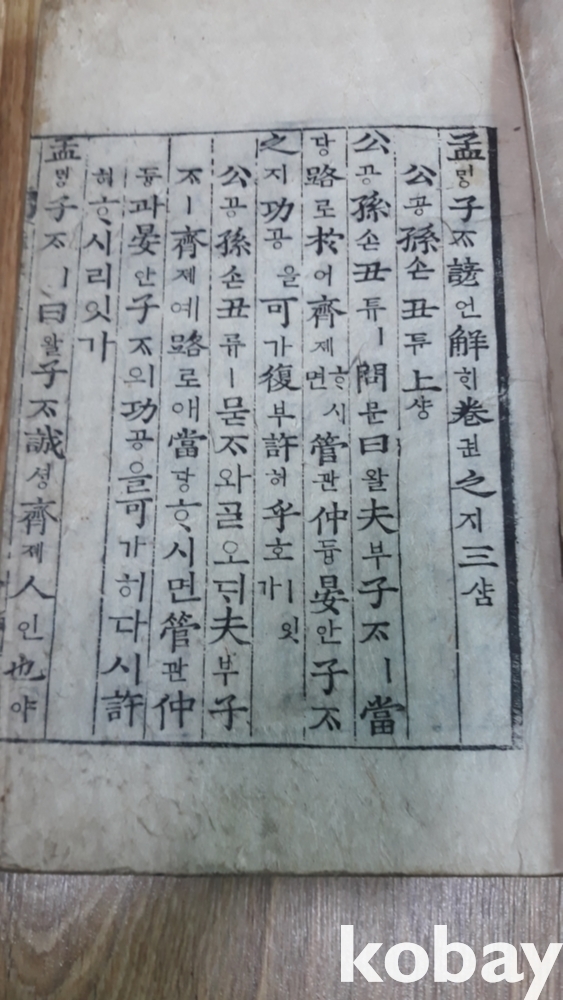 孟ᄆᆡᆼ子ᄌᆞ諺언解ᄒᆡ卷권之지三삼
公공孫손丑튜上샹
公공孫손丑튜ㅣ問문曰왈夫부子ᄌᆞㅣ當
당路로於어齊졔ᄒᆞ시면管관仲듕晏안子ᄌᆞ
之지功공을可가復부許허乎호ㅣ잇가
公공孫손丑튜ㅣ묻ᄌᆞ와ᄀᆞᆯ오ᄃᆡ夫부子
ᄌᆞㅣ齊졔예路로애當당ᄒᆞ시면管관仲
듕과晏안子ᄌᆞ의功공을可가히다시許
허ᄒᆞ시리잇가
孟ᄆᆡᆼ子ᄌᆞㅣ曰왈子ᄌᆞ誠셩齊졔人인也야
kobay